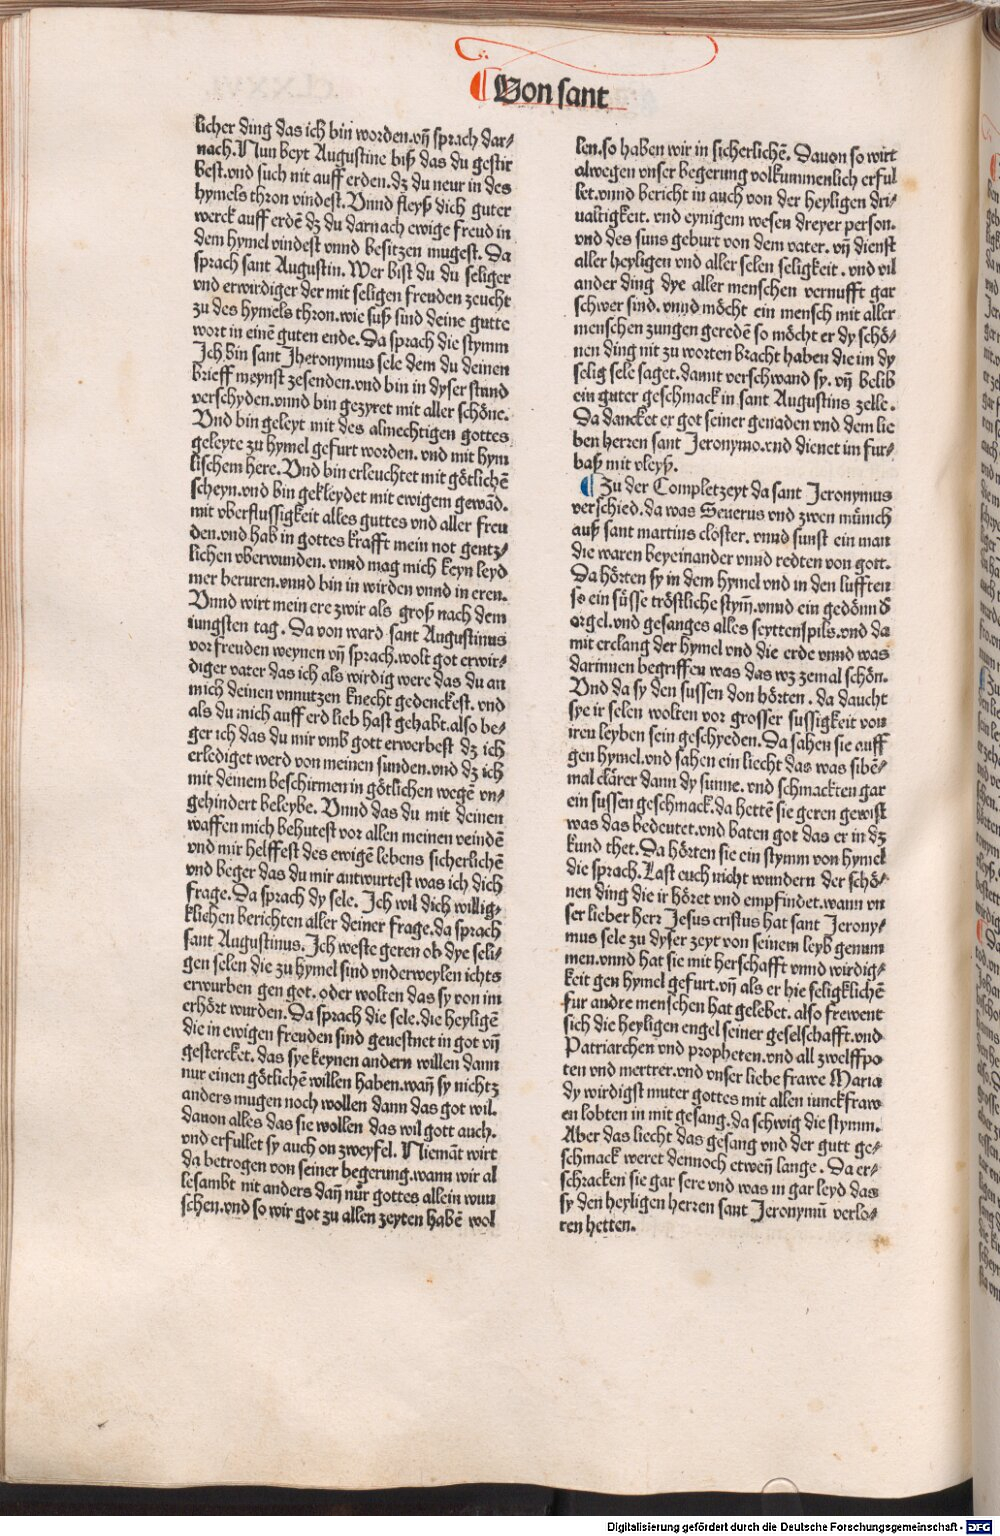 Von sant
licher ding das ich bin worden.vñ sprach dar-
nach.Nun beyt Augustine biß das du gestir
best.vnd such nit auff erden.dz du neur in des
hymels thron vindest.Vnnd fleyß dich guter
werck auff erdē dz du darnach ewige freud in
dem hymel vindest vnnd besitzen mugest. Da
sprach sant Augustin. Wer bist du du seliger
vnd erwirdiger der mit seligen freuden zeucht
zu des hymels thron.wie suß sind deine gutte
wort in einē guten ende. Da sprach die stymm
Ich bin sant Jheronymus sele dem du deinen
brieff meynst zesenden.vnd bin in dyser stund
verschyden.vnnd bin gezyret mit aller schöne.
Vnd bin geleyt mit des almechtigen gottes
geleyte zu hymel gefurt worden. vnd mit hym
lischem here. Vnd bin erleuchtet mit götlichē
scheyn.vnd bin gekleydet mit ewigem gewād.
mit vberflussigkeit alles guttes vnd aller freu
den.vnd hab in gottes krafft mein not gentz-
lichen vberwunden. vnnd mag mich keyn leyd
mer beruren.vnnd bin in wirden vnnd in eren.
Vnnd wirt mein ere zwir als groß nach dem
iungsten tag. Da von ward sant Augustinus
vor freuden weynen vñ sprach.wolt got erwir-
diger vater das ich als wirdig were das du an
mich deinen vnnutzen knecht gedenckest. vnd
als du mich auff erd lieb hast gehabt.also be-
ger ich das du mir vmb gott erwerbest dz ich
erlediget werd von meinen sunden.vnd dz ich
mit deinem beschirmen in götlichen wegē vn-
gehindert beleybe. Vnnd das du mit deinen
waffen mich behutest vor allen meinen veindē
vnd mir helffest des ewigē lebens sicherlichē
vnd beger das du mir antwurtest was ich dich
frage. Da sprach dy sele. Ich wil dich willig-
klichen berichten aller deiner frage.da sprach
sant Augustinus. Ich weste geren ob dye seli-
gen selen die zu hymel sind vnderweylen ichts
erwurben gen got. oder wolten das sy von im
erhört wurden. Da sprach die sele.die heyligē
die in ewigen freuden sind geuestnet in got vñ
gestercket. das sye keynen andern willen dann
nur einen götlichē willen haben.wañ sy nichtz
anders mugen noch wollen dann das got wil.
dauon alles das sie wollen das wil gott auch.
vnd erfullet sy auch on zweyfel. Niemāt wirt
da betrogen von seiner begerung.wann wir al
lesambt nit anders dañ nür gottes allein wun
schen.vnd so wir got zu allen zeyten habē wol
len.so haben wir in sicherlichē. Dauon so wirt
alwegen vnser begerung volkummenlich erful
let.vnnd bericht in auch von der heyligen dri-
ualtigkeit. vnd eynigem wesen dreyer person.
vnd des suns geburt von dem vater. vñ dienst
aller heyligen vnd aller selen seligkeit. vnd vil
ander ding dye aller menschen vernufft gar
schwer sind. vnnd möcht ein mensch mit aller
menschen zungen geredē so möcht er dy schö-
nen ding nit zu worten bracht haben die im dy
selig sele saget.damit verschwand sy. vñ belib
ein guter geschmack in sant Augustins zelle.
Da dancket er got seiner genaden vnd dem lie
ben herren sant Jeronymo.vnd dienet im fur-
baß mit vleyß.
Zu der Completzeyt da sant Jeronymus
verschied.da was Seuerus vnd zwen münich
auß sant martins closter. vnnd sunst ein man
die waren beyeinander vnnd redten von gott.
Da hörten sy in dem hymel vnd in den lufften
so ein süsse tröstliche stym̄.vnnd ein gedönn d̄
orgel.vnd gesanges alles seyttenspils.vnd da
mit erclang der hymel vnd die erde vnnd was
darinnen begriffen was das wz zemal schön.
Vnd da sy den sussen don hörten. da daucht
sye ir selen wolten vor grosser sussigkeit von
iren leyben sein geschyeden. Da sahen sie auff
gen hymel.vnd sahen ein liecht das was sibē-
mal clärer dann dy sunne. vnd schmackten gar
ein sussen geschmack.da hettē sie geren gewist
was das bedeutet.vnd baten got das er in dz
kund thet. Da hörten sie ein stymm von hymel
die sprach. Last euch nicht wundern der schö-
nen ding die ir höret vnd empfindet.wann vn
ser lieber herr Jesus cristus hat sant Jerony-
mus sele zu dyser zeyt von seinem leyb genum
men.vnnd hat sie mit herschafft vnnd wirdig-
keit gen hymel gefurt.vñ als er hie seligklichē
fur andre menschen hat gelebet. also frewent
sich die heyligen engel seiner geselschafft.vnd
Patriarchen vnd propheten.vnd all zwelffpo
ten vnd mertrer.vnd vnser liebe frawe Maria
dy wirdigst muter gottes mit allen iunckfraw
en lobten in mit gesang.da schwig die stymm.
Aber das liecht das gesang vnd der gutt ge-
schmack weret dennoch etweñ lange. Da er-
schracken sie gar sere vnd was in gar leyd das
sy den heyligen herren sant Jeronymū verlo-
ren hetten.
Digitalisierung gefördert durch die Deutsche Forschungsgemeinschaft - DFG